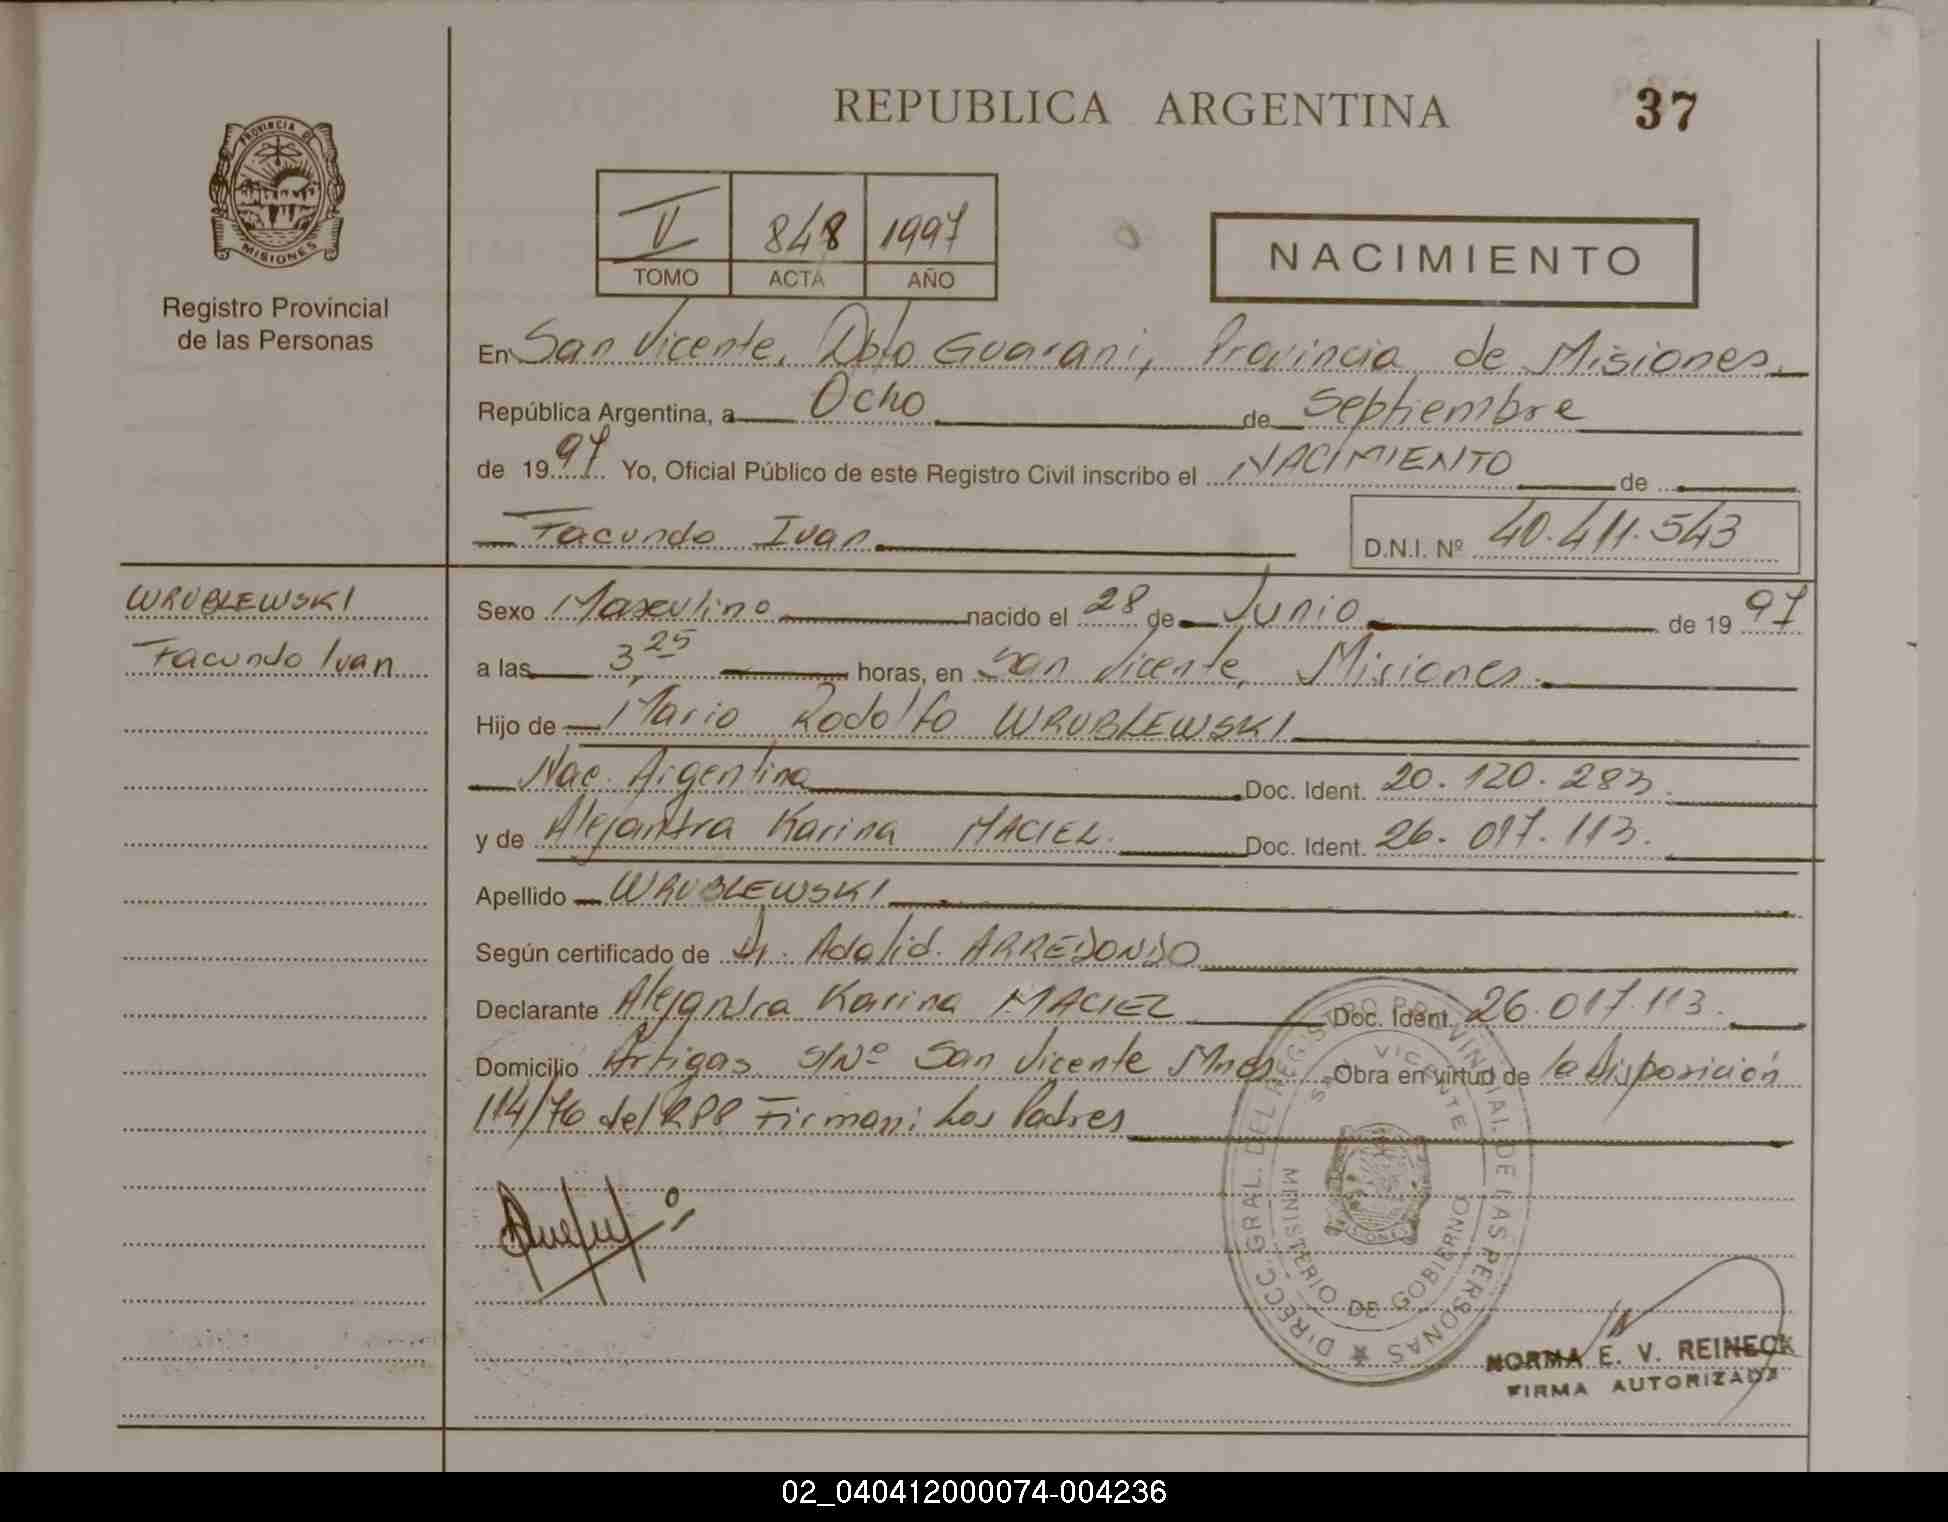 REPUBLICA ARGENTINA
37
PROVINCIA DE MISIONES
Registro Provincial
de las Personas
V 848 1997
TOMO ACTA AÑO
NACIMIENTO
En San Vicente, Dpto Guarani, Provincia de Misiones.
República Argentina, a Ocho de Septiembre
de 1997 Yo, Oficial Público de este Registro Civil inscribo el NACIMIENTO de
Facundo Ivan
D.N.I. Nº 40.411.543
WRUBLEWSKI
Facundo Ivan
Sexo Masculino nacido el 28 de Junio de 1997
a las 3,25 horas, en San Vicente, Misiones.
Hijo de Mario Rodolfo WRUBLEWSKI
Nac. Argentina Doc. Ident. 20.120.283.
y de Alejandra Karina MACIEL. Doc. Ident. 26.017.113.
Apellido WRUBLEWSKI
Según certificado de Dr. Adalid. ARREDONDO
Declarante Alejandra Karina MACIEL Doc. Ident. 26.017.113.
Domicilio Artigas S/Nº San Vicente Mnes Obra en virtud de la Disposición
114/76 del RPP Firman: Los Padres
DIRECC. GRAL. DEL REGISTRO PROVINCIAL DE LAS PERSONAS
SAN VICENTE
MINISTERIO DE GOBIERNO
MISIONES
NORMA E. V. REINECK
FIRMA AUTORIZADA
02_040412000074-004236